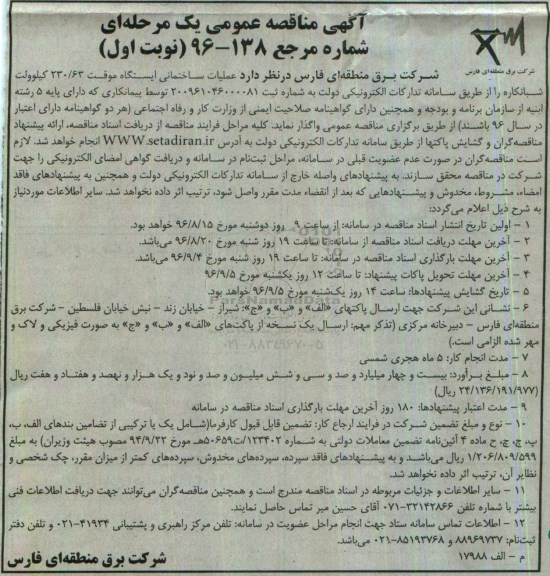 آگهی مناقصه عمومی یک مرحله‌ای
شماره مرجع ۱۳۸-۹۶ (نوبت اول)
شرکت برق منطقه‌ای فارس
شرکت برق منطقه‌ای فارس درنظر دارد عملیات ساختمانی ایستگاه موقت ۲۳۰/۶۳ کیلوولت
شبانکاره را از طریق سامانه تدارکات الکترونیکی دولت به شماره ثبت ۲۰۰۹۶۱۰۴۶۰۰۰۰۸۱ توسط پیمانکاری که دارای پایه ۵ رشته
ابنیه از سازمان برنامه و بودجه و همچنین دارای گواهینامه صلاحیت ایمنی از وزارت کار و رفاه اجتماعی (هر دو گواهینامه دارای اعتبار
در سال ۹۶ باشند) از طریق برگزاری مناقصه عمومی واگذار نماید: کلیه مراحل فرایند مناقصه از دریافت اسناد مناقصه، ارائه پیشنهاد
مناقصه‌گران و گشایش پاکتها از طریق سامانه تدارکات الکترونیکی دولت به آدرس WWW.setadiran.ir انجام خواهد شد. لازم
است مناقصه‌گران در صورت عدم عضویت قبلی در سامانه، مراحل ثبت‌نام در سامانه و دریافت گواهی امضای الکترونیکی را جهت
شرکت در مناقصه محقق سازند. به پیشنهادهای واصله خارج از سامانه تدارکات الکترونیکی دولت و همچنین به پیشنهادهای فاقد
امضاء، مشروط، مخدوش و پیشنهادهایی که بعد از انقضاء مدت مقرر واصل شود، ترتیب اثر داده نخواهد شد. سایر اطلاعات موردنیاز
به شرح ذیل اعلام می‌گردد:
۱ - اولین تاریخ انتشار اسناد مناقصه در سامانه: از ساعت ۹ روز دوشنبه مورخ ۹۶/۸/۱۵ خواهد بود.
۲ - آخرین مهلت دریافت اسناد مناقصه از سامانه: تا ساعت ۱۹ روز شنبه مورخ ۹۶/۸/۲۰ می‌باشد.
۳ - آخرین مهلت بارگذاری اسناد مناقصه در سامانه: تا ساعت ۱۹ روز شنبه مورخ ۹۶/۹/۴ می‌باشد.
۴ - آخرین مهلت تحویل پاکات پیشنهاد: تا ساعت ۱۲ روز یکشنبه مورخ ۹۶/۹/۵
۵ - تاریخ گشایش پیشنهادها: ساعت ۱۴ روز یکشنبه مورخ ۹۶/۹/۵ خواهد بود.
۶ - نشانی این شرکت جهت ارسال پاکتهای «الف» و «ب» و «ج»: شیراز - خیابان زند - نبش خیابان فلسطین - شرکت برق
منطقه‌ای فارس - دبیرخانه مرکزی (تذکر مهم: ارسال یک نسخه از پاکت‌های «الف» و «ب» و «ج» به صورت فیزیکی و لاک و
مهر شده الزامی است.)
۷ - مدت انجام کار: ۵ ماه هجری شمسی
۸ - مبلغ برآورد: بیست و چهار میلیارد و صد و سی و شش میلیون و صد و نود و یک هزار و نهصد و هفتاد و هفت ریال
(۲۴/۱۳۶/۱۹۱/۹۷۷) ریال
۹ - مدت اعتبار پیشنهادها: ۱۸۰ روز آخرین مهلت بارگذاری اسناد مناقصه در سامانه
۱۰ - نوع و مبلغ تضمین شرکت در فرایند ارجاع کار: تضمین قابل قبول کارفرما(شامل یک یا ترکیبی از تضامین بندهای الف، ب،
پ، ج، چ، ح ماده ۴ آئین‌نامه تضمین معاملات دولتی به شماره ۱۲۳۴۰۲/ت۵۰۶۵۹هـ مورخ ۹۴/۹/۲۲ مصوب هیئت وزیران) به مبلغ
۱/۲۰۶/۸۰۹/۵۹۹ ریال می‌باشد و به پیشنهادهای فاقد سپرده، سپرده‌های مخدوش، سپرده‌های کمتر از میزان مقرر، چک شخصی و
نظایر آن، ترتیب اثر داده نخواهد شد.
۱۱ - سایر اطلاعات و جزئیات مربوطه در اسناد مناقصه مندرج است و همچنین مناقصه‌گران می‌توانند جهت دریافت اطلاعات فنی
بیشتر با شماره تلفن ۳۲۱۴۲۸۶۶-۰۷۱ آقای حسین میر تماس حاصل نمایند.
۱۲ - اطلاعات تماس سامانه ستاد جهت انجام مراحل عضویت در سامانه: تلفن مرکز راهبری و پشتیبانی ۴۱۹۳۴-۰۲۱ و تلفن دفتر
ثبت‌نام: ۸۸۹۶۹۷۳۷ و ۸۵۱۹۳۷۶۸-۰۲۱ می‌باشد.
م - الف ۱۷۹۸۸
شرکت برق منطقه‌ای فارس